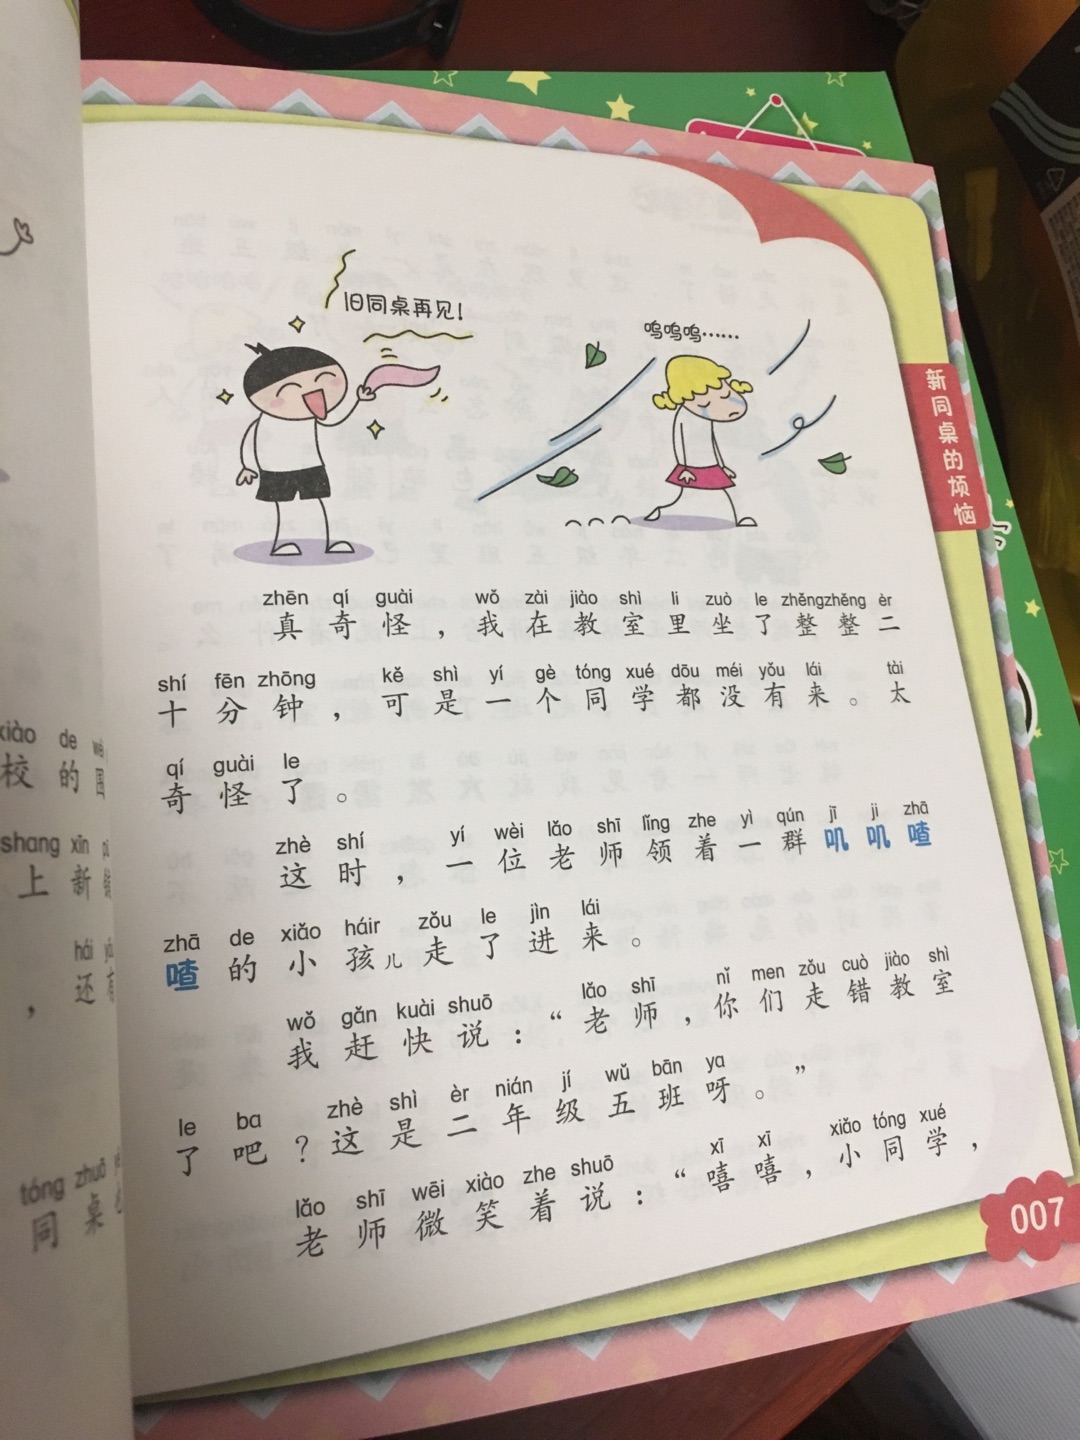 旧同桌再见！
呜呜呜……
新同桌的烦恼
zhēn qí guài wǒ zài jiào shì li zuò le zhěngzhěng èr
真奇怪，我在教室里坐了整整二
shí fēn zhōng kě shì yí gè tóng xué dōu méi yǒu lái tài
十分钟，可是一个同学都没有来。太
qí guài le
奇怪了。
zhè shí yí wèi lǎo shī lǐng zhe yì qún jī ji zhā
这时，一位老师领着一群叽叽喳
zhā de xiǎo háir zǒu le jìn lái
喳的小孩儿走了进来。
wǒ gǎn kuài shuō lǎo shī nǐ men zǒu cuò jiào shì
我赶快说：“老师，你们走错教室
le ba zhè shì èr nián jí wǔ bān ya
了吧？这是二年级五班呀。”
lǎo shī wēi xiào zhe shuō xī xī xiǎo tóng xué
老师微笑着说：“嘻嘻，小同学，
007
xiào de
校的
shang xīn
上新
hái
，还
tóng zhuō
同桌